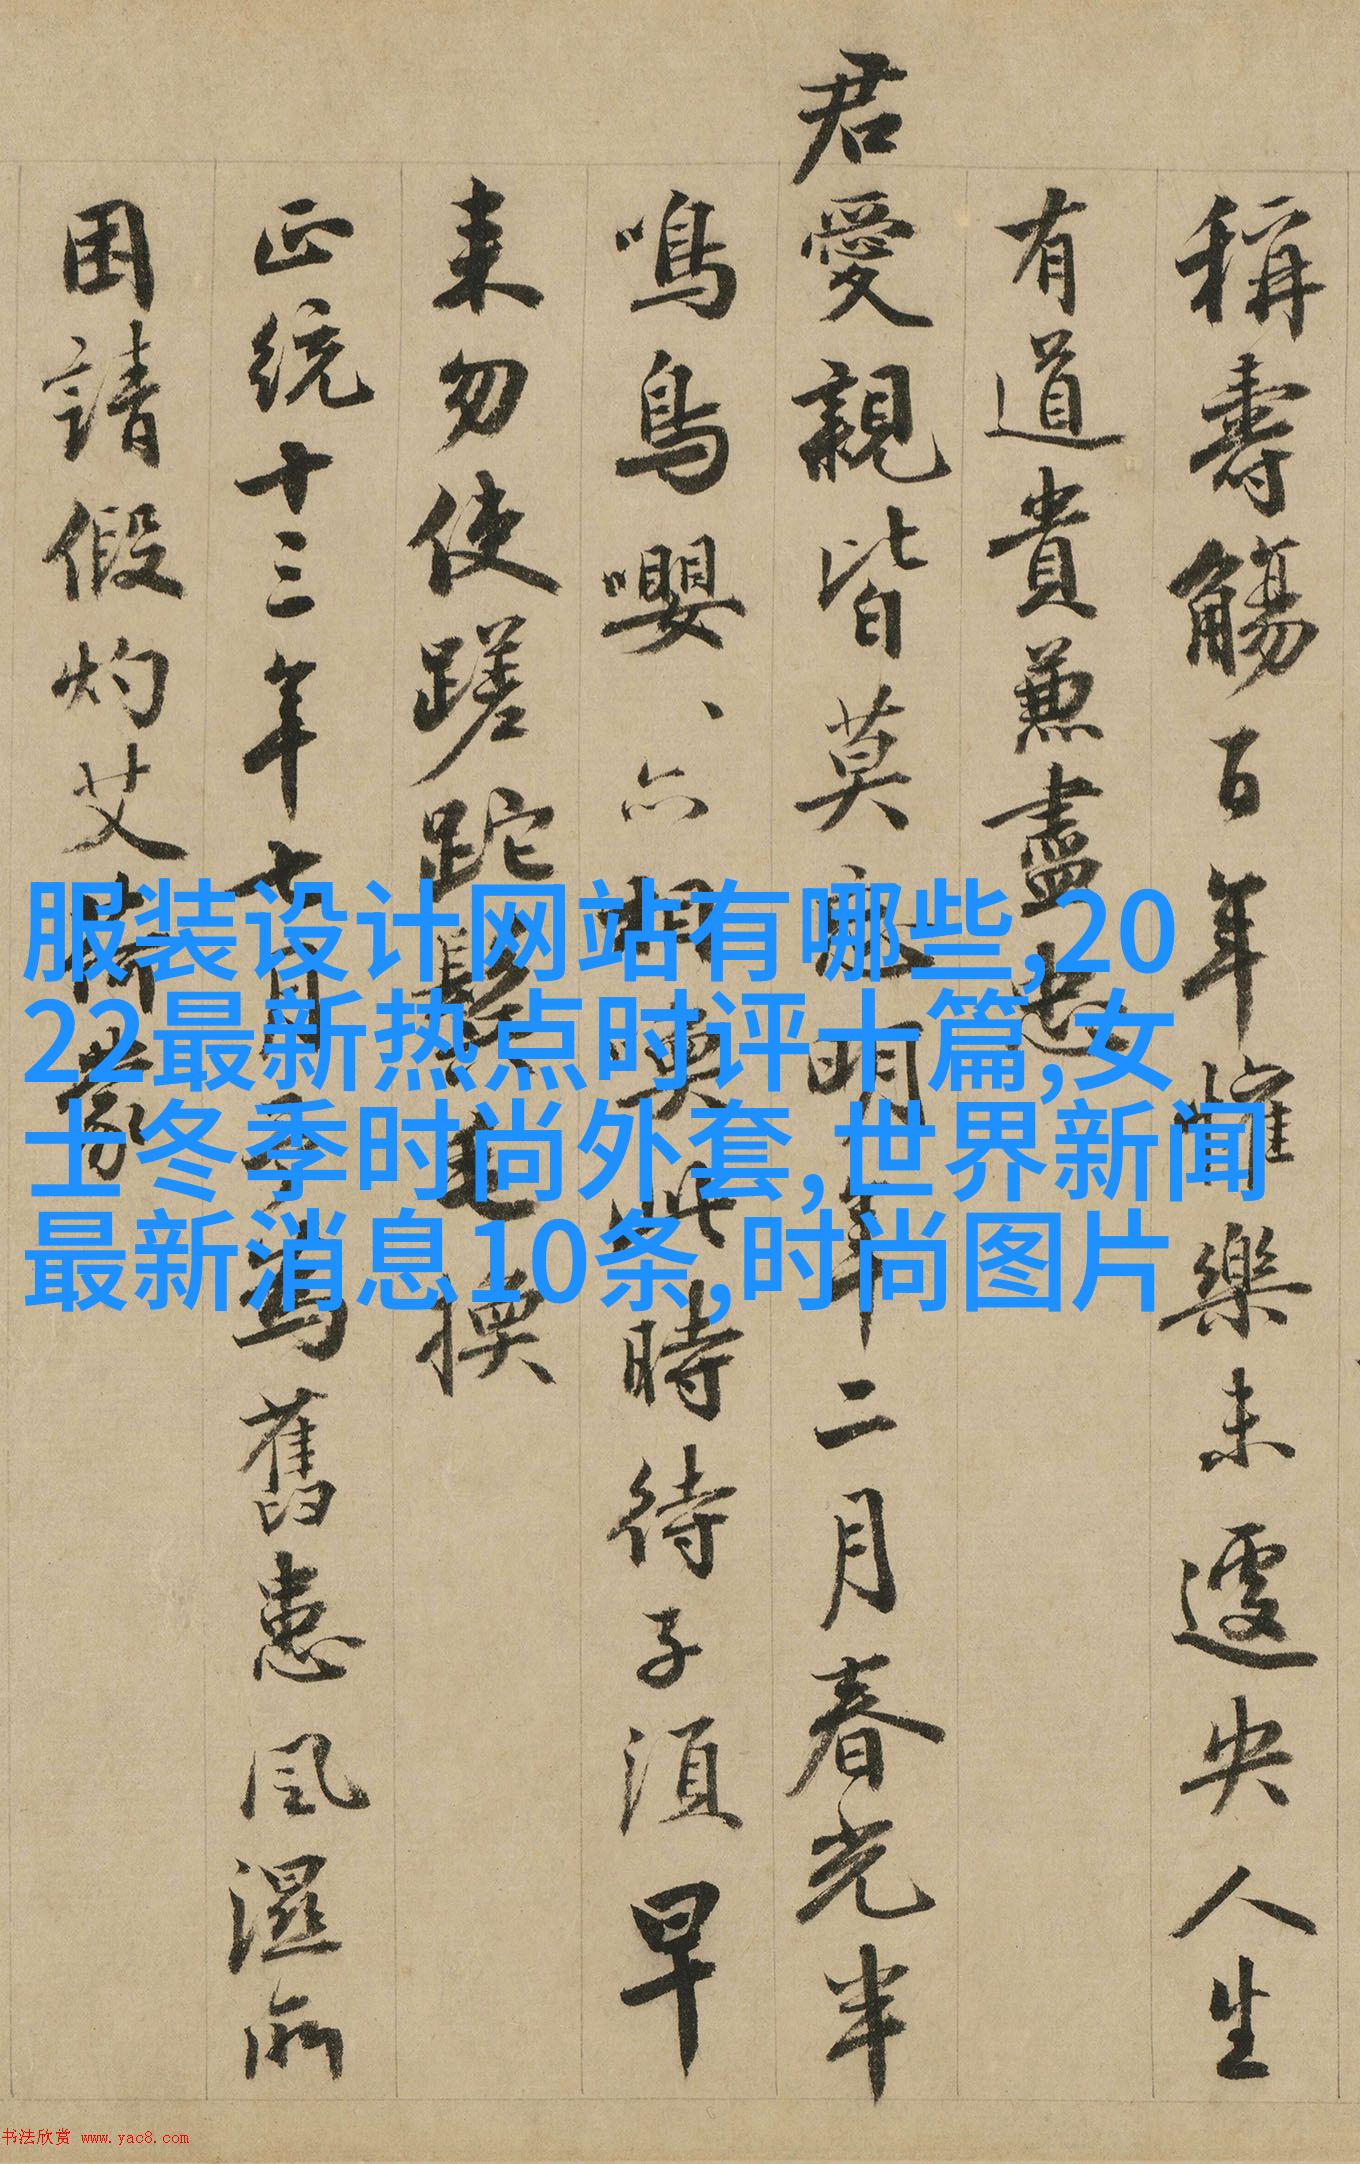 稱壽觴百年懽樂未遽央人生
有道貴兼盡忠
君愛親皆莫
明年二月春光半
鳴鳥嚶、亦相
此時待子須早
来勿使蹉跎髭毛换
正统十三年七月
舊患風濕所
困請假灼艾蒙
服装设计网站有哪些,20
22最新热点时评十篇,女
士冬季时尚外套,世界新闻
最新消息10条,时尚图片
书法欣赏 www.yac8.com